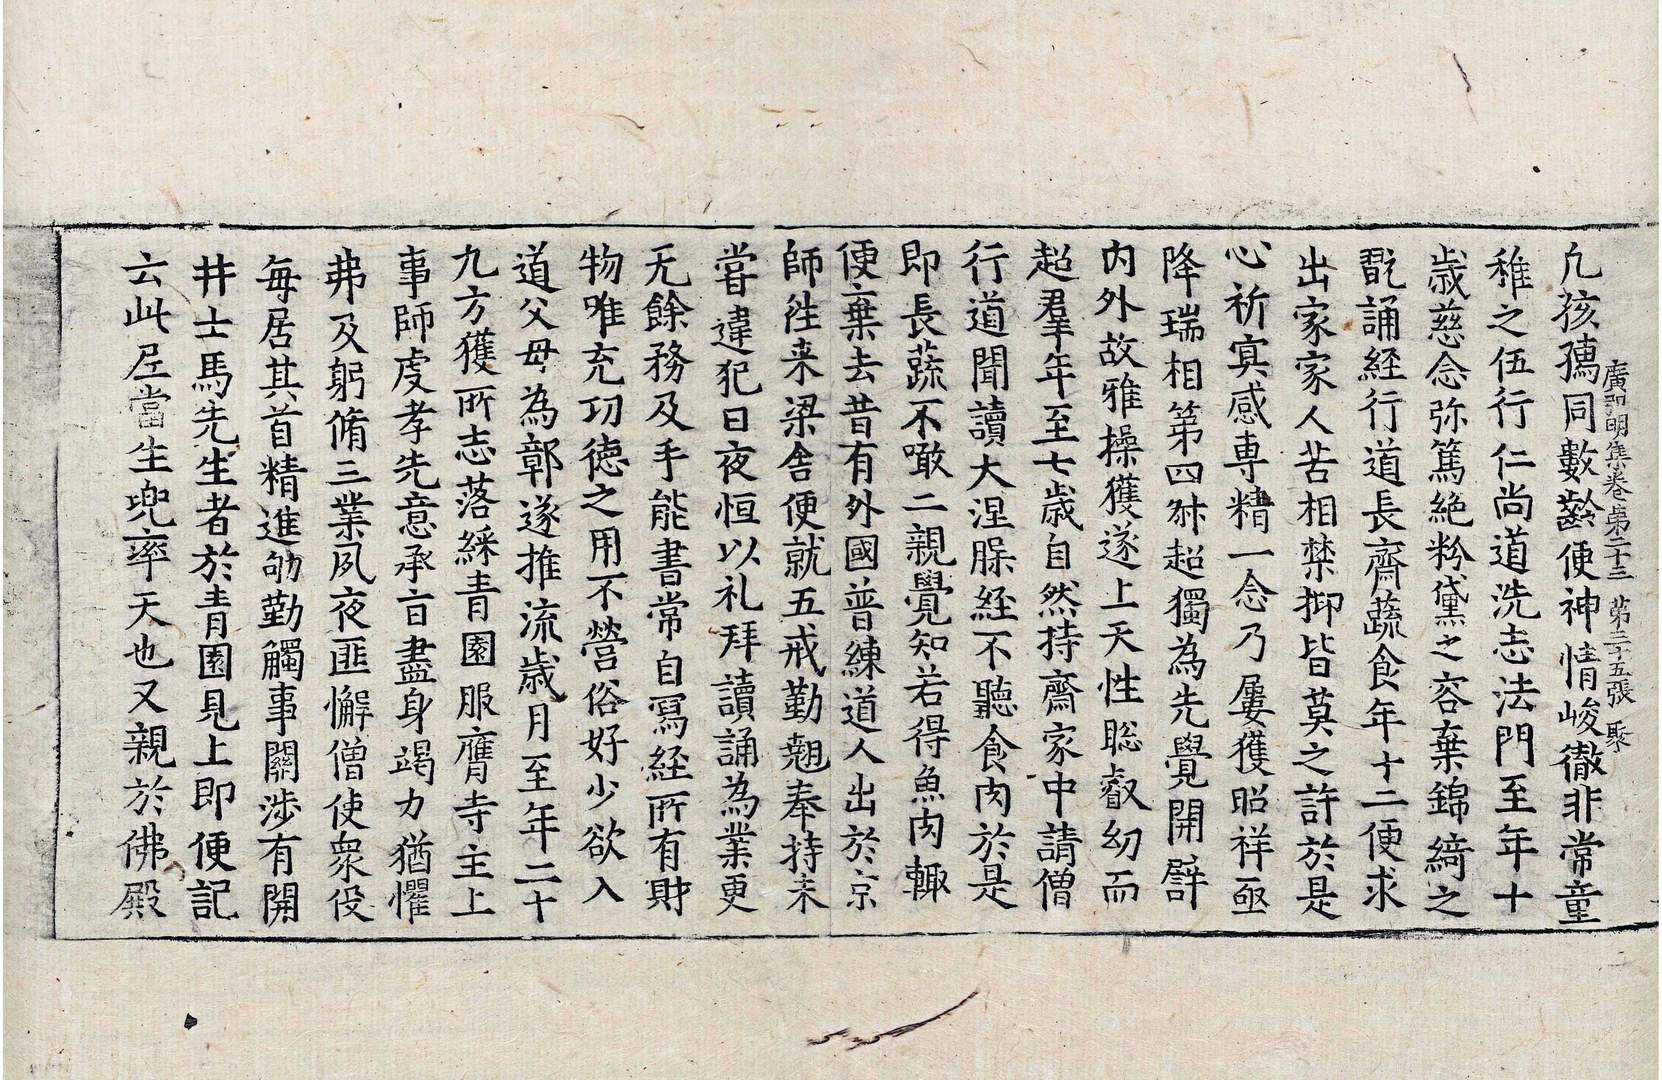 凢孩孺同數齡便神情峻徹非常童
廣弘明集卷第二十三 第三十五張 聚
稚之伍行仁尚道洗志法門至年十
歲慈念弥篤絶粉黛之容棄錦綺之
翫誦經行道長齋蔬食年十二便求
出家家人苦相禁抑皆莫之許於是
心祈冥感專精一念乃屢獲昭祥亟
降瑞相第四叔超獨為先覺開譬
內外故雅操獲遂上天性聡叡幼而
超羣年至七歲自然持齋家中請僧
行道聞讀大涅槃經不聽食肉於是
即長蔬不噉二親覺知若得魚肉輙
便棄去昔有外國普練道人出於京
師往来梁舍便就五戒勤翹奉持未
嘗違犯日夜恒以礼拜讀誦為業更
无餘務及手能書常自寫經所有財
物唯充功德之用不營俗好少欲入
道父母為鄣遂推流歲月至年二十
九方獲所志落綵青園服膺寺主上
事師虔孝先意承旨盡身竭力猶懼
弗及躬脩三業夙夜匪懈僧使衆役
每居其首精進劬勤觸事關涉有開
井士馬先生者於青園見上即便記
云此尼當生兜率天也又親於佛殿